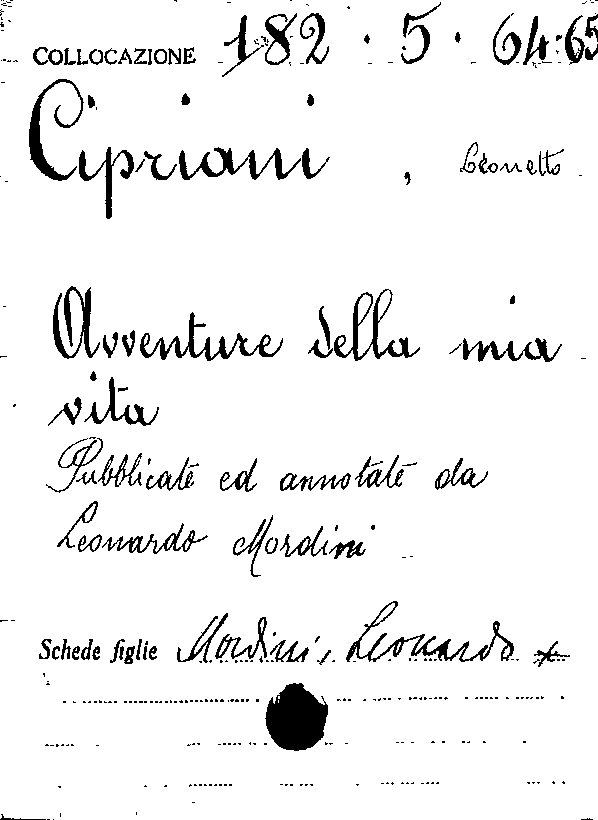 COLLOCAZIONE 182 · 5 · 64-65
Cipriani, Leonetto
Avventure della mia
vita
Pubblicate ed annotate da
Leonardo Mordini
Schede figlie Mordini, Leonardo x